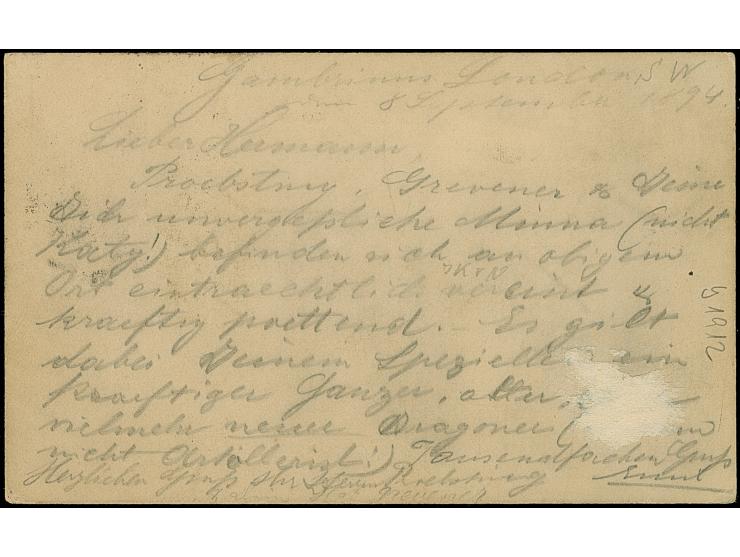 Gambrinus London, S W
den 8 September 1894.
Lieber Hermann,
Proebsting, Grevener & Deine
Dich unvergeßliche Minna (nicht
Katy!) befinden sich an obigem
Ort eintraechtlich vereint &
kraeftig poettend. - Es gilt
dabei Deinem Speziellen ein
kraeftiger Ganzer, alter,
vielmehr neuer Dragoner (
nicht Artillerist!) Tausendfachen Gruß
Herzlichen Gruß Ihr Proebsting Emil
Grevener
51912